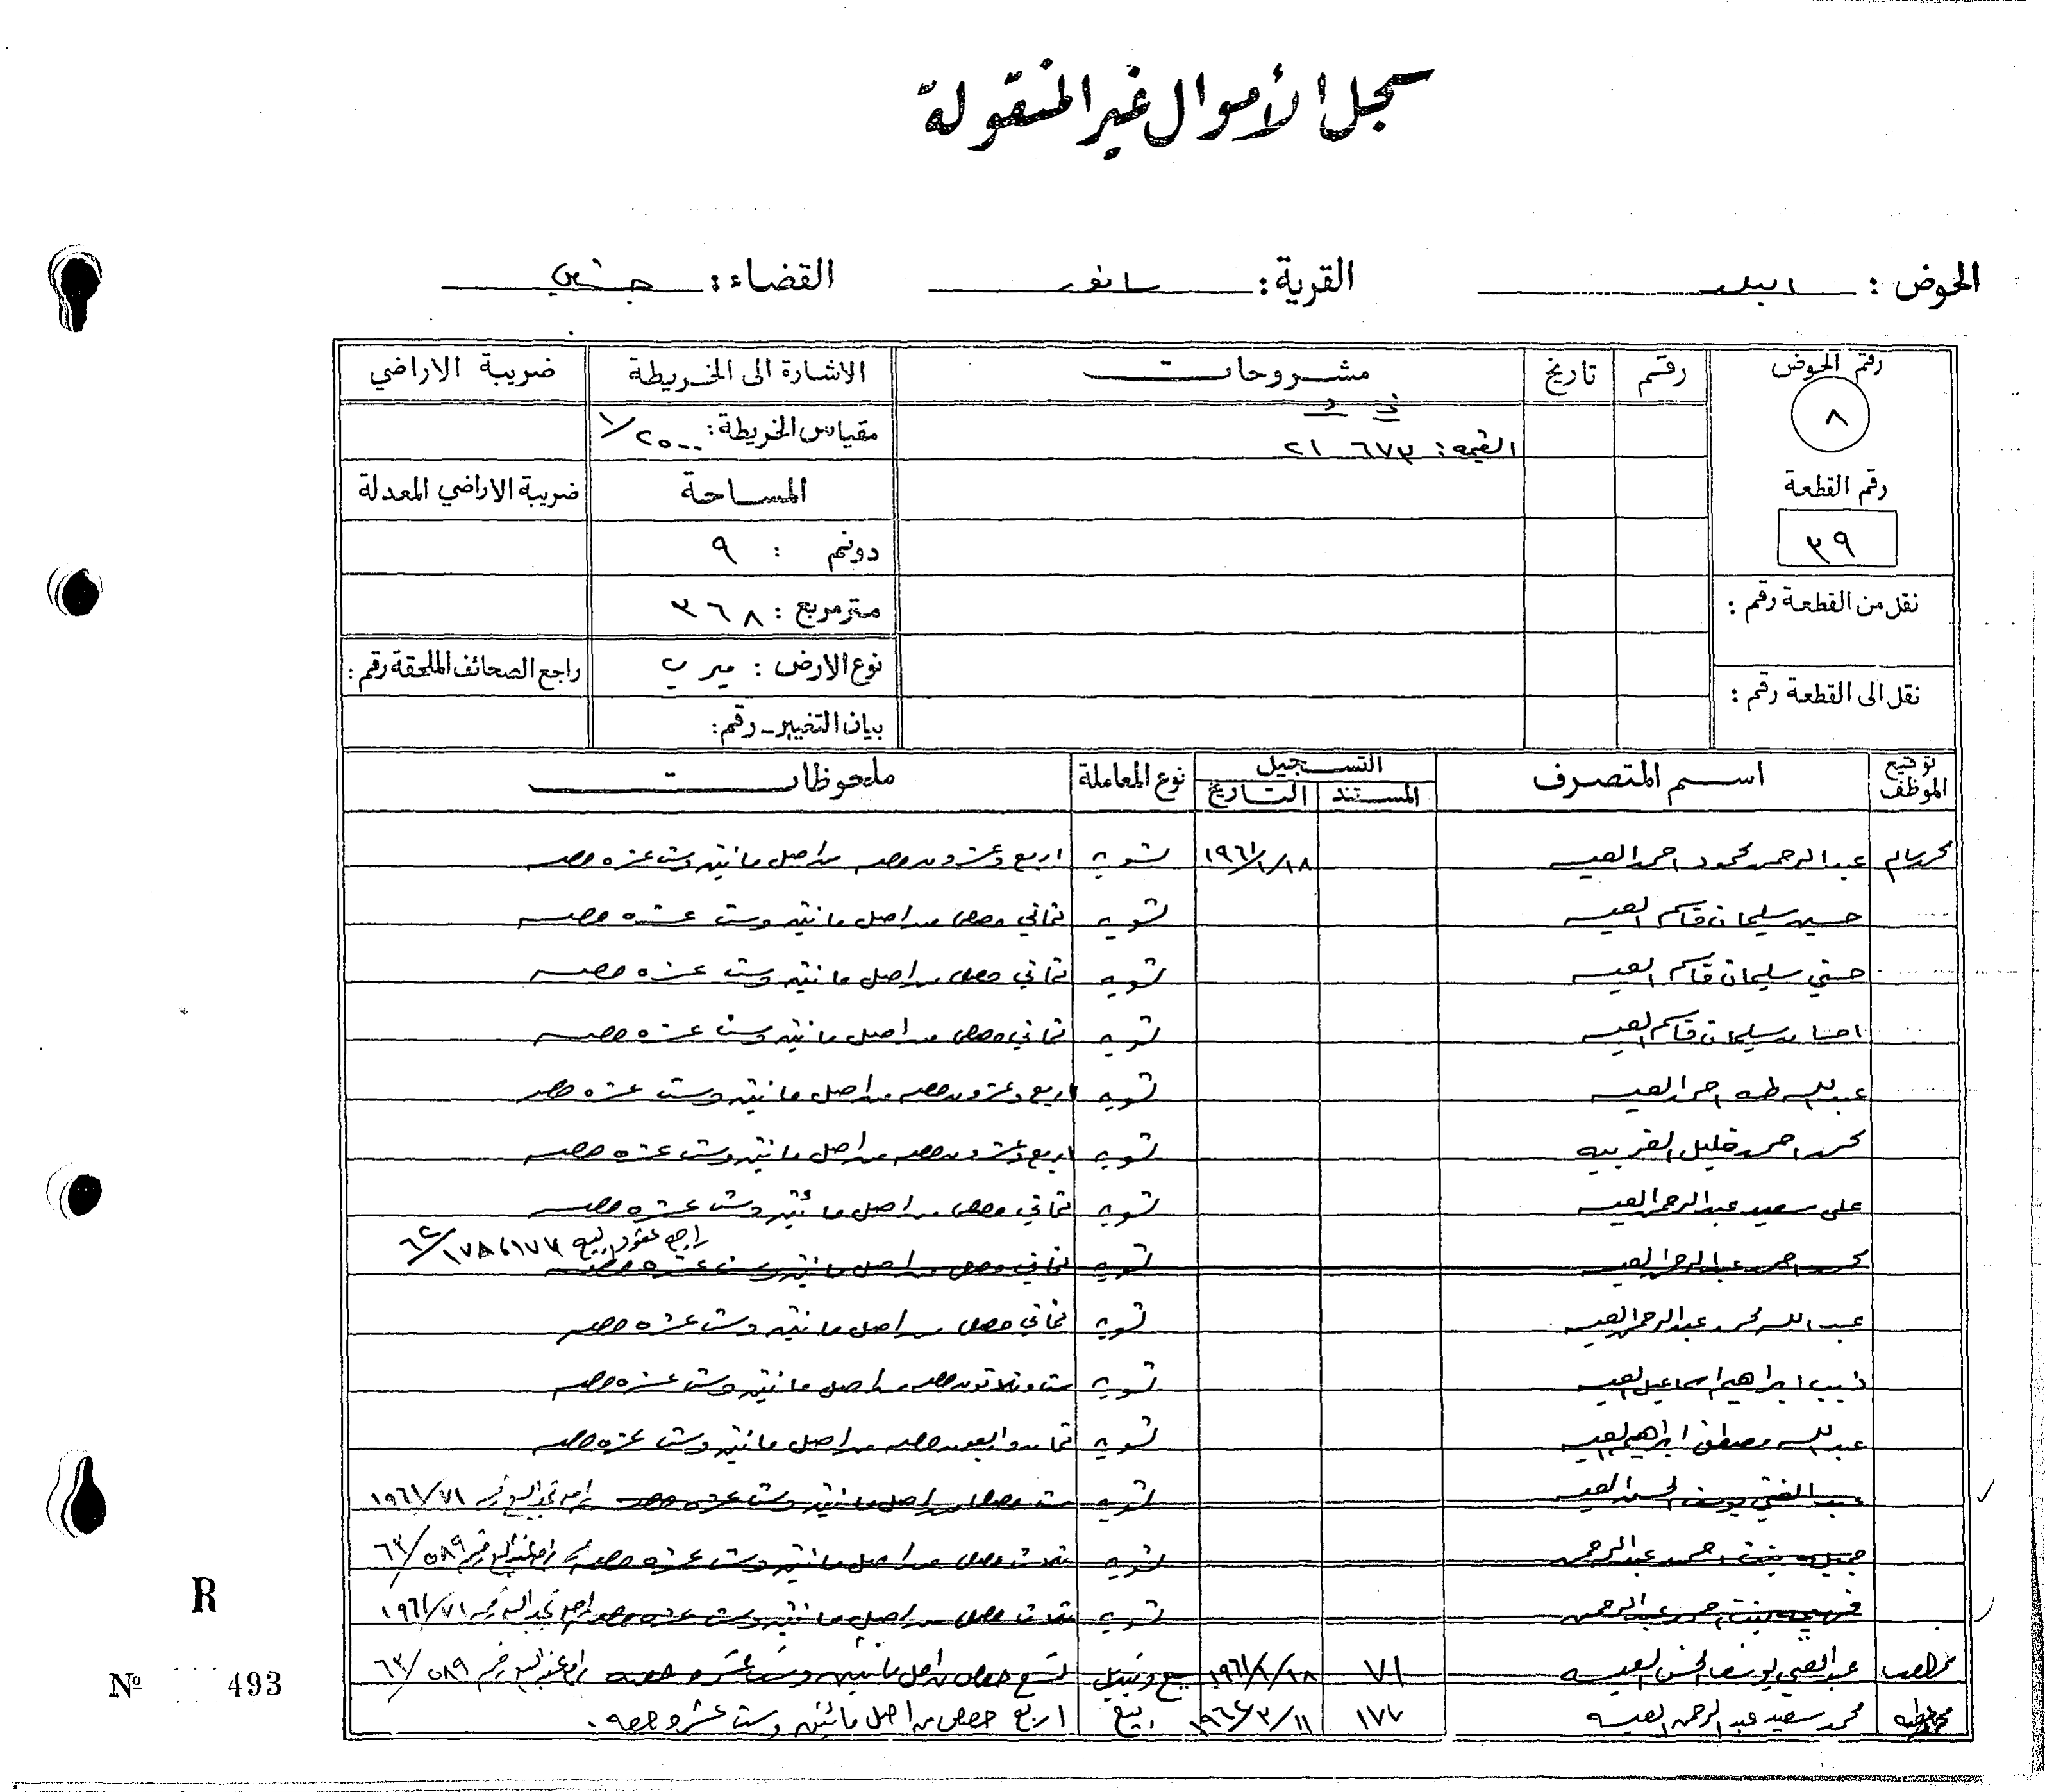 سجل الأموال غير المنقولة
الحوض : البلد القرية : سانور القضاء : جنين
رقم الحوض رقم تاريخ مشروحات الاشارة الى الخريطة ضريبة الاراضي
٨
القيمة : ٦٧٣ ٢١
مقياس الخريطة : ١/٢٥٠٠
رقم القطعة المساحة ضريبة الاراضي المعدلة
٣٩
دونم : ٩
نقل من القطعة رقم : متر مربع : ٣٦٨
نوع الارض : ميري راجع الصحائف الملحقة رقم :
نقل الى القطعة رقم :
بيان التغيير - رقم :
توقيع الموظف اسم المتصرف التسجيل نوع المعاملة ملحوظات
المستند التاريخ
عبد الرحمن محمود احمد العيسه ١٩٦١/١/١٨ تسويه اربع وعشرون حصه من اصل مائتين وست عشره حصه
حسين سليمان قاسم العيسه تسويه ثماني حصص من اصل مائتين وست عشره حصه
حسني سليمان قاسم العيسه تسويه ثماني حصص من اصل مائتين وست عشره حصه
احسان سليمان قاسم العيسه تسويه ثماني حصص من اصل مائتين وست عشره حصه
عبد الله طه احمد العيسه تسويه اربع وعشرون حصه من اصل مائتين وست عشره حصه
محمد احمد خليل الغربيه تسويه اربع وعشرون حصه من اصل مائتين وست عشره حصه
علي سعيد عبد الرحمن العيسه تسويه ثماني حصص من اصل مائتين وست عشره حصه
محمد احمد عبد الرحمن العيسه تسويه ثماني حصص من اصل مائتين وست عشره حصه راجع عقود البيع ١٧٧ ، ١٧٨/٦٢
عبد الله محمد عبد الرحمن العيسه تسويه ثماني حصص من اصل مائتين وست عشره حصه
ذيب ابراهيم اسماعيل العيسه تسويه ست وثلاثون حصه من اصل مائتين وست عشره حصه
عبد الله مصطفى ابراهيم العيسه تسويه ثمان واربعون حصه من اصل مائتين وست عشره حصه
عبد الغني يوسف الحسن العيسه تسويه ست حصص من اصل مائتين وست عشره حصه راجع عقد البيع رقم ١٩٦١/٧١
جميله بنت احمد عبد الرحمن تسويه ثلاث حصص من اصل مائتين وست عشره حصه راجع عقد البيع رقم ٦٣/٥٨٩
فهيمه بنت احمد عبد الرحمن تسويه ثلاث حصص من اصل مائتين وست عشره حصه راجع عقد البيع رقم ١٩٦١/٧١
عبد الغني يوسف الحسن العيسه ٧١ ١٩٦١/١/١٨ بيع وتبديل تسع حصص من اصل مائتين وست عشره حصه راجع عقد البيع رقم ٦٣/٥٨٩
محمد سعيد عبد الرحمن العيسه ١٧٧ ١٩٦٢/٣/١١ بيع اربع حصص من اصل مائتين وست عشره حصه .
R
№ 493